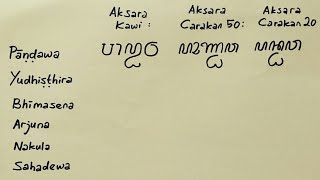 Aksara Kawi : Aksara Carakan 50: Aksara Carakan 20
Pāṇḍawa
Yudhiṣṭhira
Bhīmasena
Arjuna
Nakula
Sahadewa